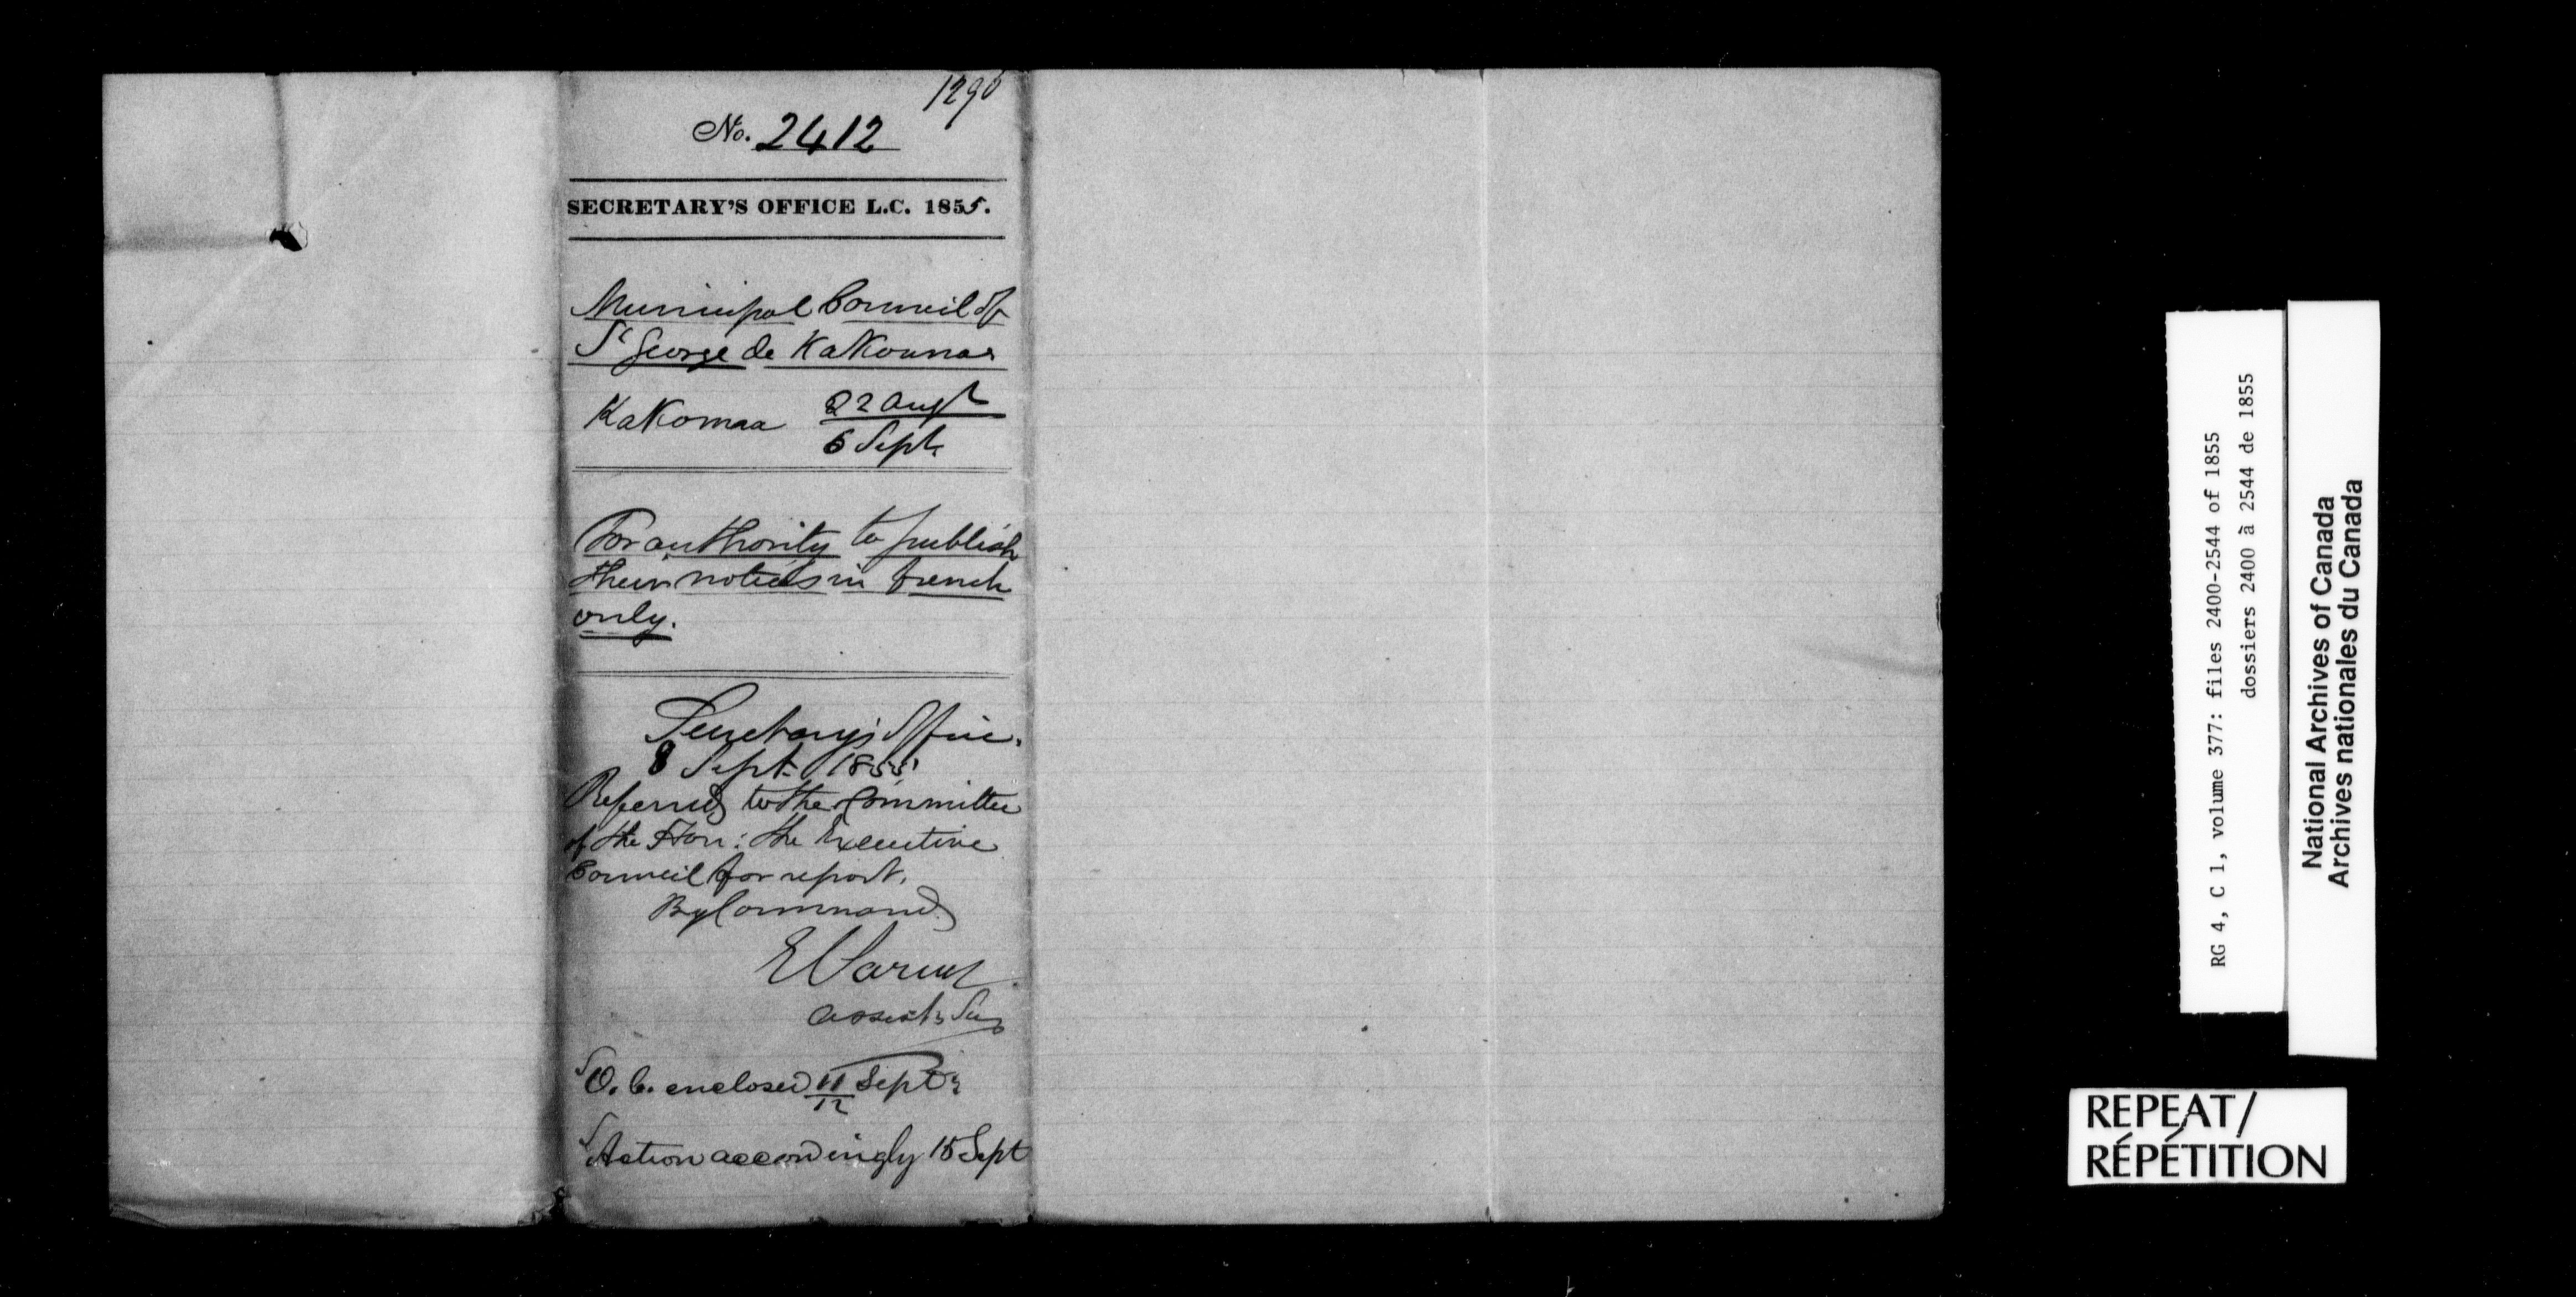 1290
No. 2412
SECRETARY'S OFFICE L.C. 1855.
Municipal Council of
St George de Kakounas
Kakomaa 22 Augt
6 Sept.
For authority to publish
their notices in french
only.
Secretary's Office.
8 Sept. 1855
Referred to the Committee
of the Hon: the Executive
Council for report.
By Command
E Parent
Assist. Secy
O. C. enclosed 11/12 Sept.
Action accordingly 15 Sept
RG 4, C 1, volume 377: files 2400-2544 of 1855
dossiers 2400 à 2544 de 1855
National Archives of Canada
Archives nationales du Canada
REPEAT/
RÉPÉTITION